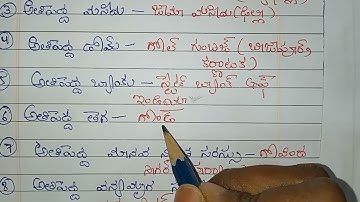 ③ ಅತಿದೊಡ್ಡ ಮಸೀದಿ - ಜಾಮಾ ಮಸೀದಿ (ದೆಹಲಿ)
④ ಅತಿದೊಡ್ಡ ಡೋಮ್ - ಗೋಲ್ ಗುಂಬಜ್ (ಬಿಜಾಪೂರ್,
ಕರ್ನಾಟಕ)
⑤ ಅತಿದೊಡ್ಡ ಬ್ಯಾಂಕು - ಸ್ಟೇಟ್ ಬ್ಯಾಂಕ್ ಆಫ್
ಇಂಡಿಯಾ
⑥ ಅತಿದೊಡ್ಡ - ಗೊಂಡ್
⑦ ಅತಿದೊಡ್ಡ ಮಾನವ - ಗೋವಿಂದ
⑧ ಅತಿದೊಡ್ಡ